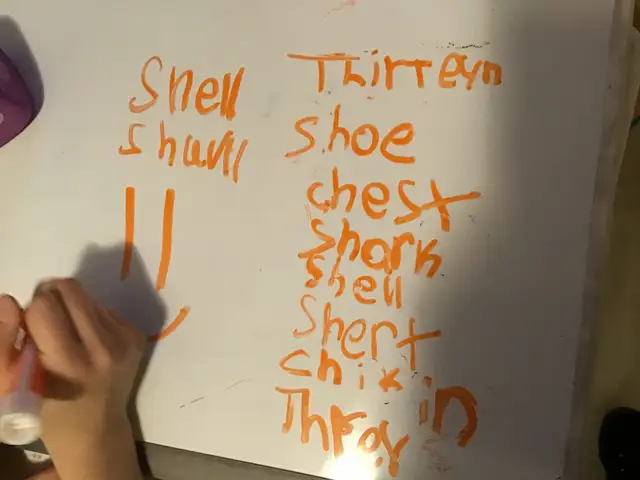 Shell
Shark
Thirteyn
Shoe
chest
Shark
Shell
Shert
chikin